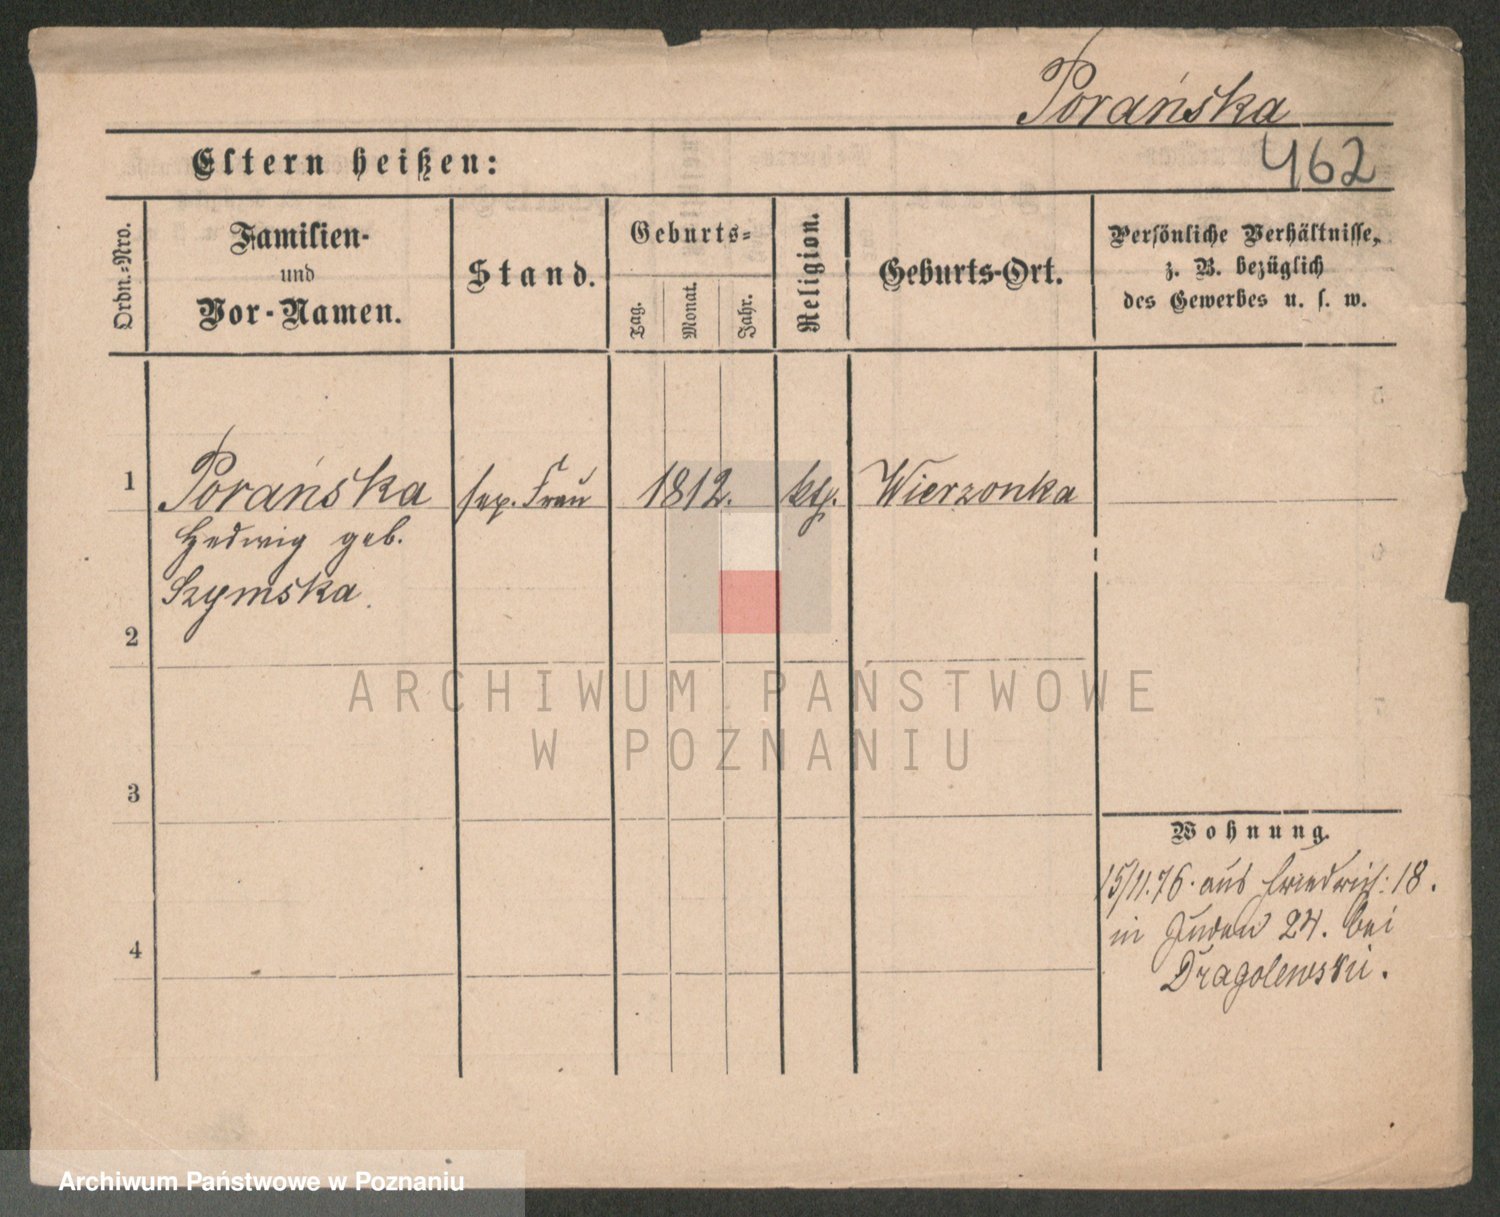 Porańska
Eltern heißen:
462
Ordn.-Nro.
Familien-
und
Vor-Namen.
Stand.
Geburts-
Tag.
Monat.
Jahr.
Religion.
Geburts-Ort.
Persönliche Verhältnisse,
z. B. bezüglich
des Gewerbes u. s. w.
1 Porańska sep. Frau 1812. kth. Wierzonka
Hedwig geb.
Szymska
2
ARCHIWUM PAŃSTWOWE
W POZNANIU
3
Wohnung.
15/11.76. aus Friedrich: 18.
in Juden 24. bei
Dragolewski.
4
Archiwum Państwowe w Poznaniu